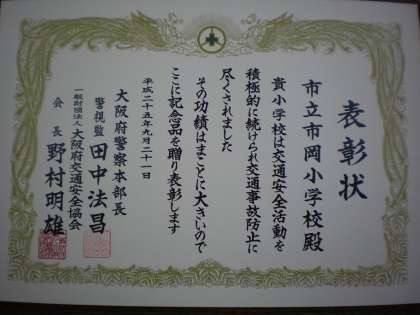 表彰状
市立市岡小学校殿
貴小学校は交通安全活動を
積極的に続けられ交通事故防止に
尽くされました
その功績はまことに大きいので
ここに記念品を贈り表彰します
平成二十五年九月二十一日
大阪府警察本部長
警視監 田中法昌
一般財団法人 大阪府交通安全協会
会長 野村明雄